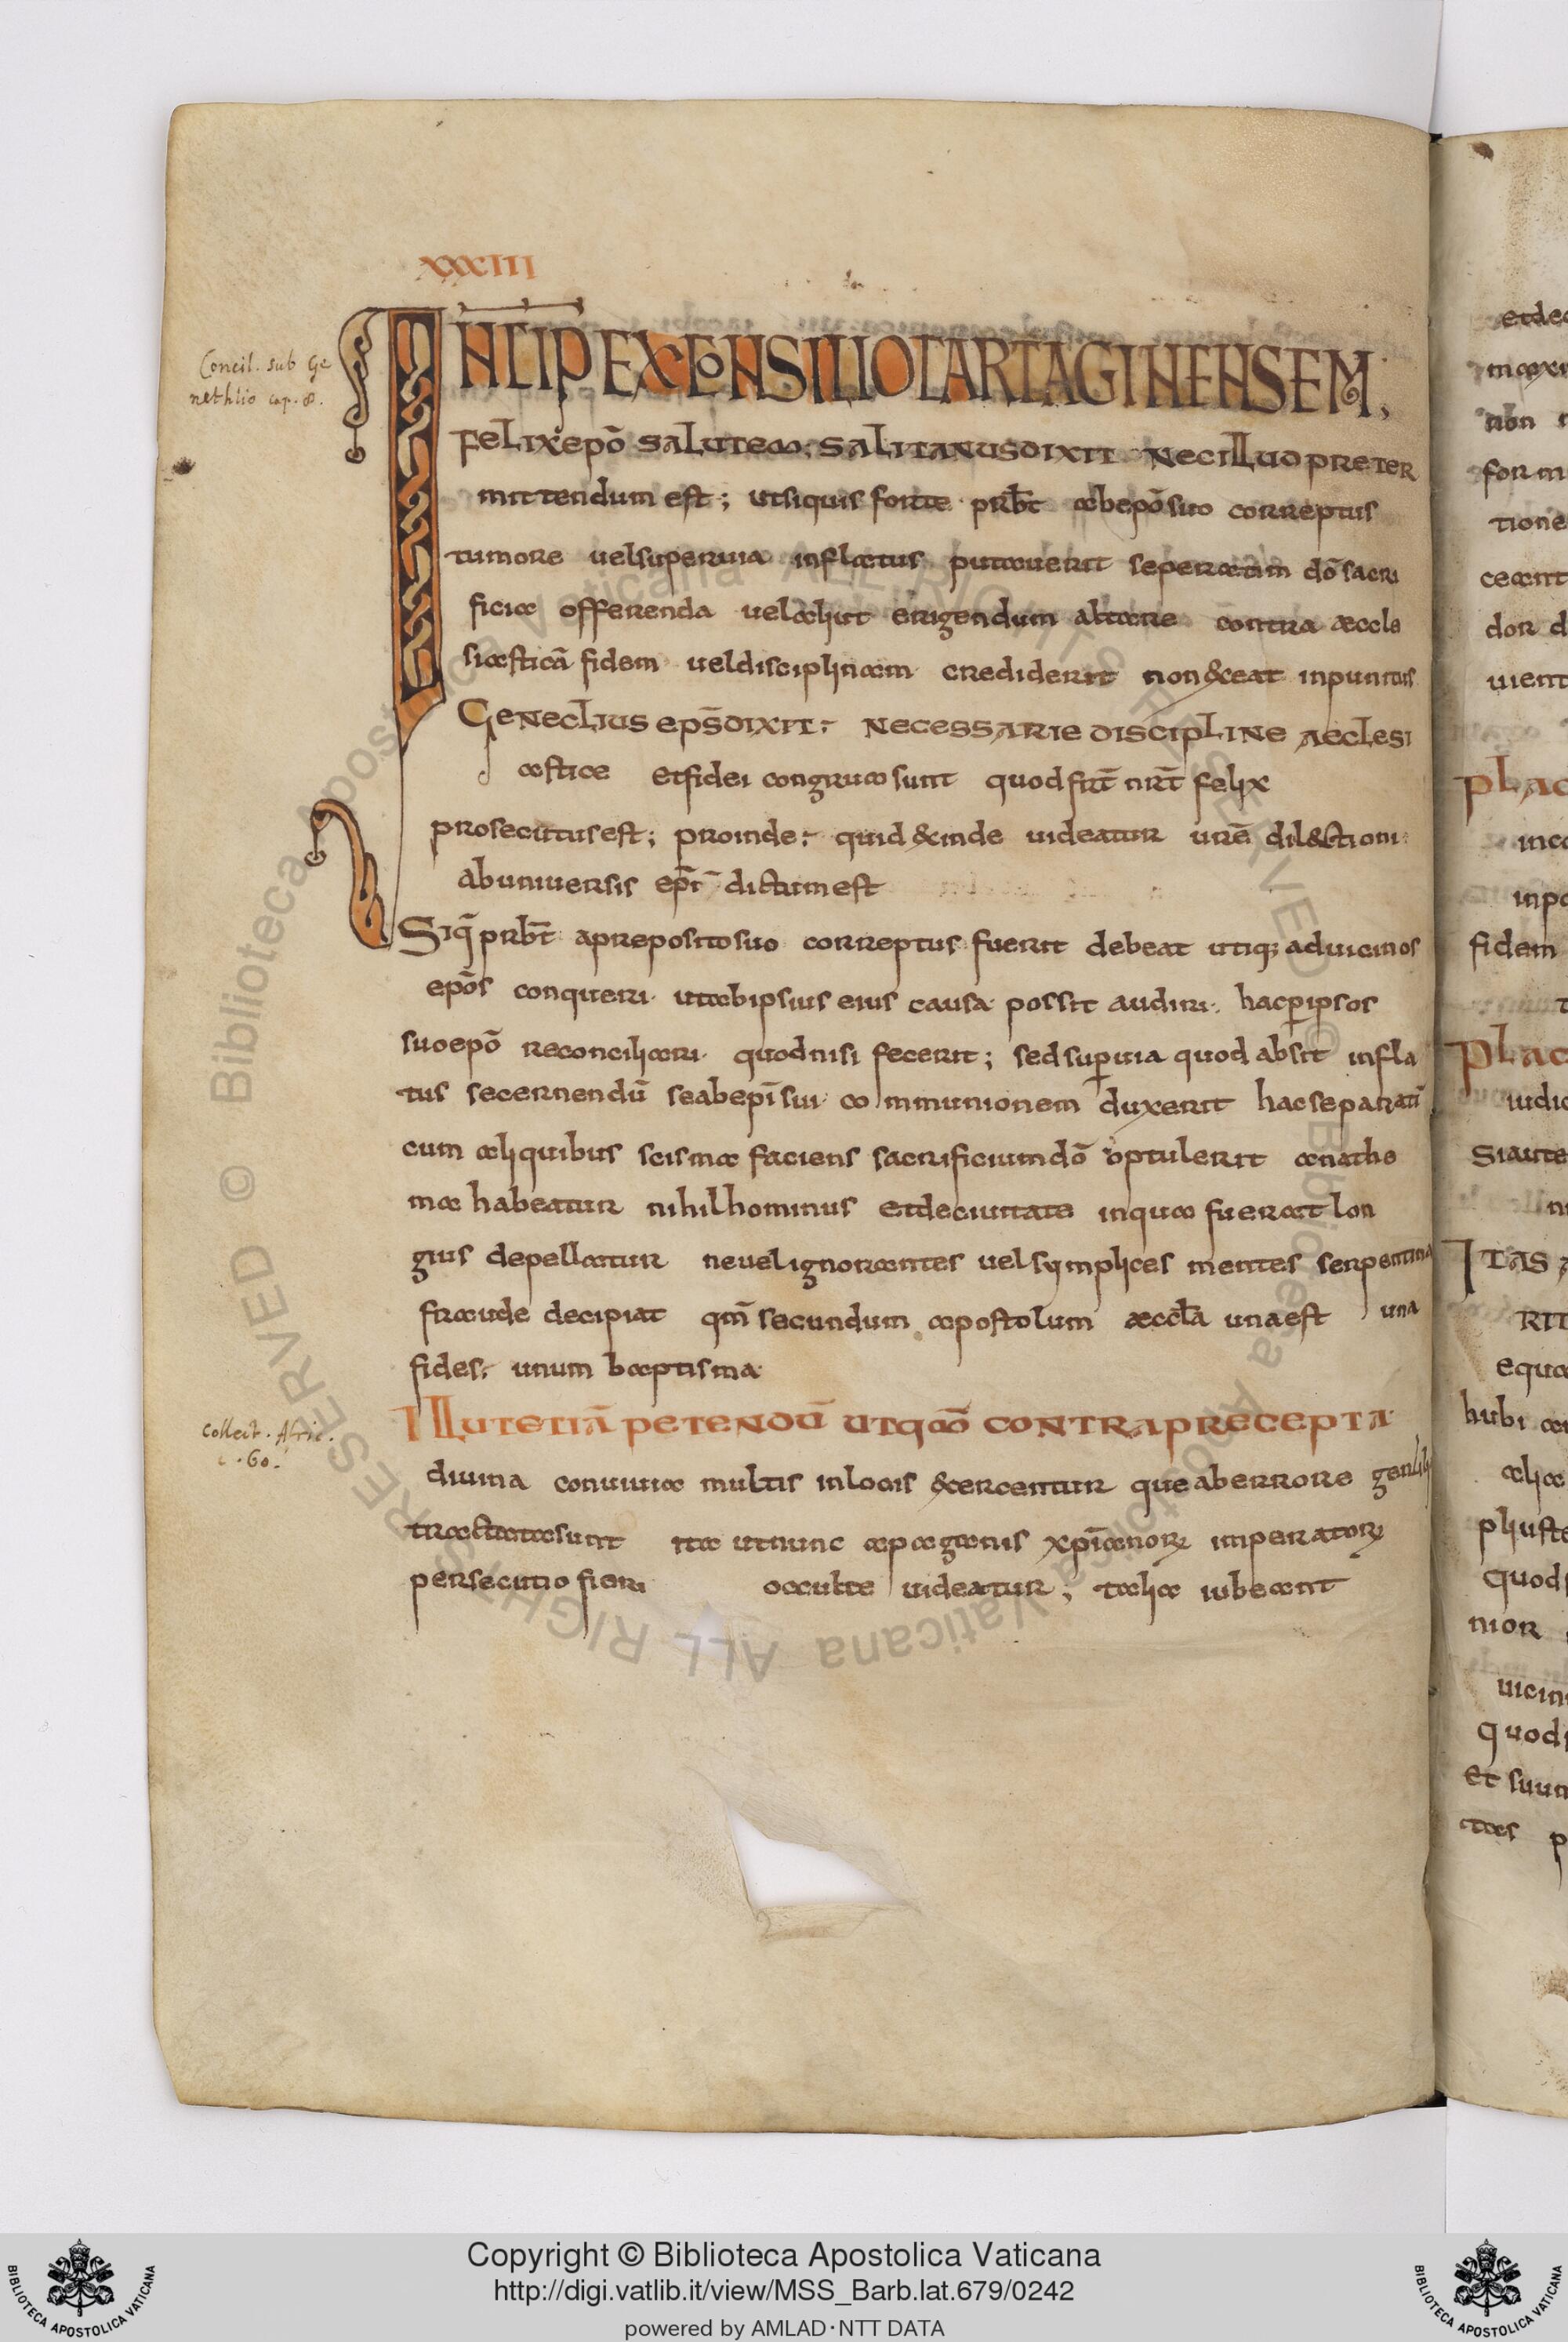 XXXIII
Concil. sub Ge
nethlio cap. 8.
INCIP EX CONSILIO CARTAGINENSEM;
Felix epō salutem; salitanus dixit Nec illud preter
mittendum est; ut si quis forte prbt̄ ab epō suo correptus
tumore uel superuia inflatus putauerit seperatim dō sacri
ficia offerenda uel aliut erigendum altare contra aeccle
siasticā fidem uel disciplinam crediderit non exeat inpunitus
Geneclius eps̄ dixit; Necessarie discipline aeclesi
astice et fidei congrua sunt quod frt̄ nrt̄ felix
prosecutus est; proinde; quid exinde uideatur urē dilectioni
ab uniuersis epī dictum est
Siq̄ prbt̄ a preposito suo correptus fuerit debeat utiq; ad uicinos
epōs conqueri ut ab ipsius eius causa possit audiri. hac ꝑ ipsos
suo epō reconciliari quod nisi fecerit; sed suꝑuia quod absit infla
tus secernendū se ab epī sui communionem duxerit hac separatī
cum aliquibus scisma faciens sacrificium dō optulerit anathe
ma habeatur nihilhominus et de ciuitate in qua fuerat lon
gius depellatur ne uel ignorantes uel symplices mentes serpentina
fraude decipiat qm̄ secundum apostolum aeccla̅ una est una
fides; unum baptisma
Collect. Afric.
c. 60.
Illut etiā petendū ut qm̄ contra precepta
diuina conuiuia multis in locis exercentur que ab errore gentili
tractata sunt ita ut nunc a paganis xpīanoꝝ imperatoꝝ
persecutio fieri occulte uideatur; talia iubeant
et dec
tione
ceant
dor d
uient
plac
inco
fidem
Plac
iudic
Siaute
Itas a
RIT
equa
hubi
alia
quods
nior
uicin
quod
et suum
Copyright © Biblioteca Apostolica Vaticana
http://digi.vatlib.it/view/MSS_Barb.lat.679/0242
powered by AMLAD·NTT DATA
BIBLIOTECA APOSTOLICA VATICANA
BIBLIOTECA APOSTOLICA VATICANA
© Biblioteca Apostolica Vaticana ALL RIGHTS RESERVED © Biblioteca Apostolica Vaticana ALL RIGHTS RESERVED